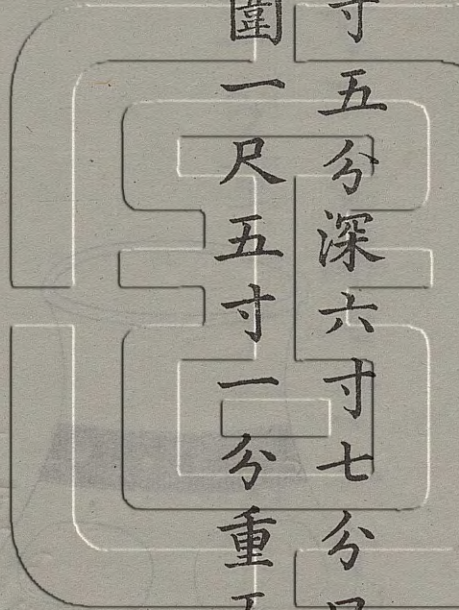 寸五分深六寸七分
圍一尺五寸一分重